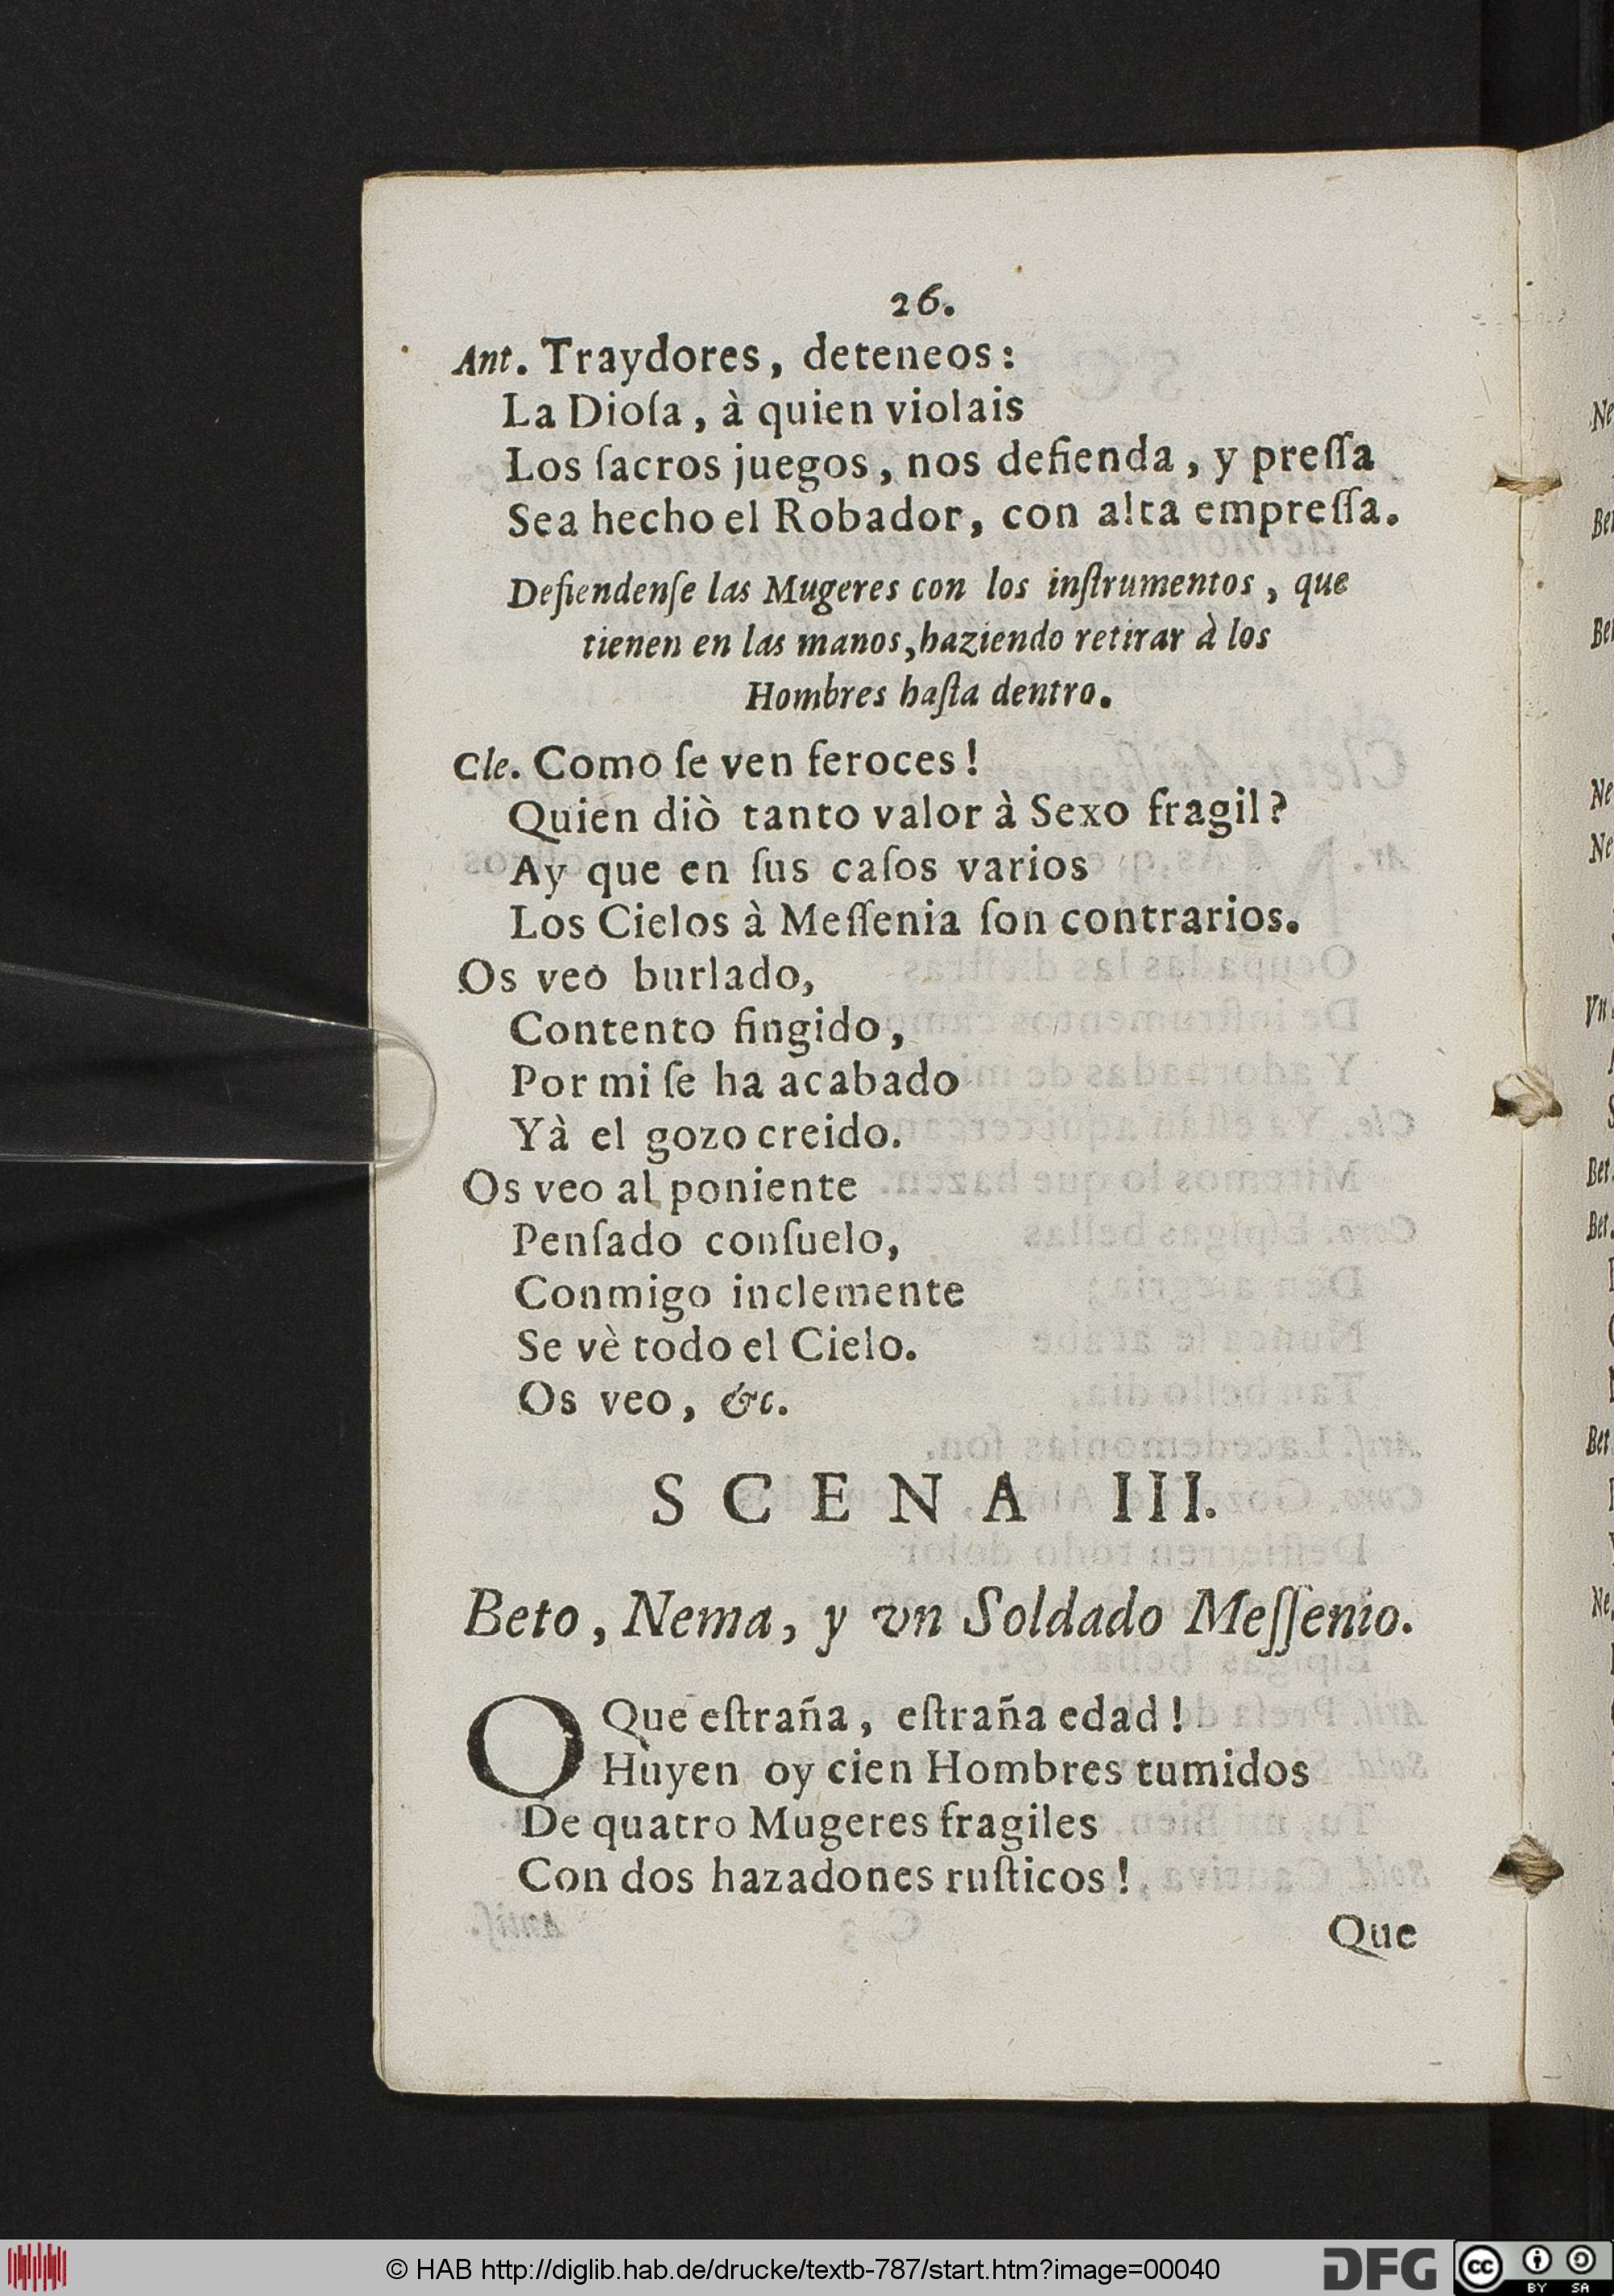 26.
Ant. Traydores, deteneos:
La Dioſa, à quien violais
Los ſacros juegos, nos defienda, y preſſa
Sea hecho el Robador, con alta empreſſa.
Defiendenſe las Mugeres con los inſtrumentos, que
tienen en las manos, haziendo retirar à los
Hombres haſta dentro.
Cle. Como ſe ven feroces!
Quien diò tanto valor à Sexo fragil?
Ay que en ſus caſos varios
Los Cielos à Meſſenia ſon contrarios.
Os veo burlado,
Contento fingido,
Por mi ſe ha acabado
Yà el gozo creido.
Os veo al poniente
Penſado conſuelo,
Conmigo inclemente
Se vè todo el Cielo.
Os veo, &c.
SCENA III.
Beto, Nema, y vn Soldado Meſſenio.
O Que eſtraña, eſtraña edad!
Huyen oy cien Hombres tumidos
De quatro Mugeres fragiles
Con dos hazadones ruſticos!
Que
Ne
Ber
Ber
Ne
Ne
Vn
Bet.
Bet.
Bet
Ne.
© HAB http://diglib.hab.de/drucke/textb-787/start.htm?image=00040
DFG
cc
BY SA